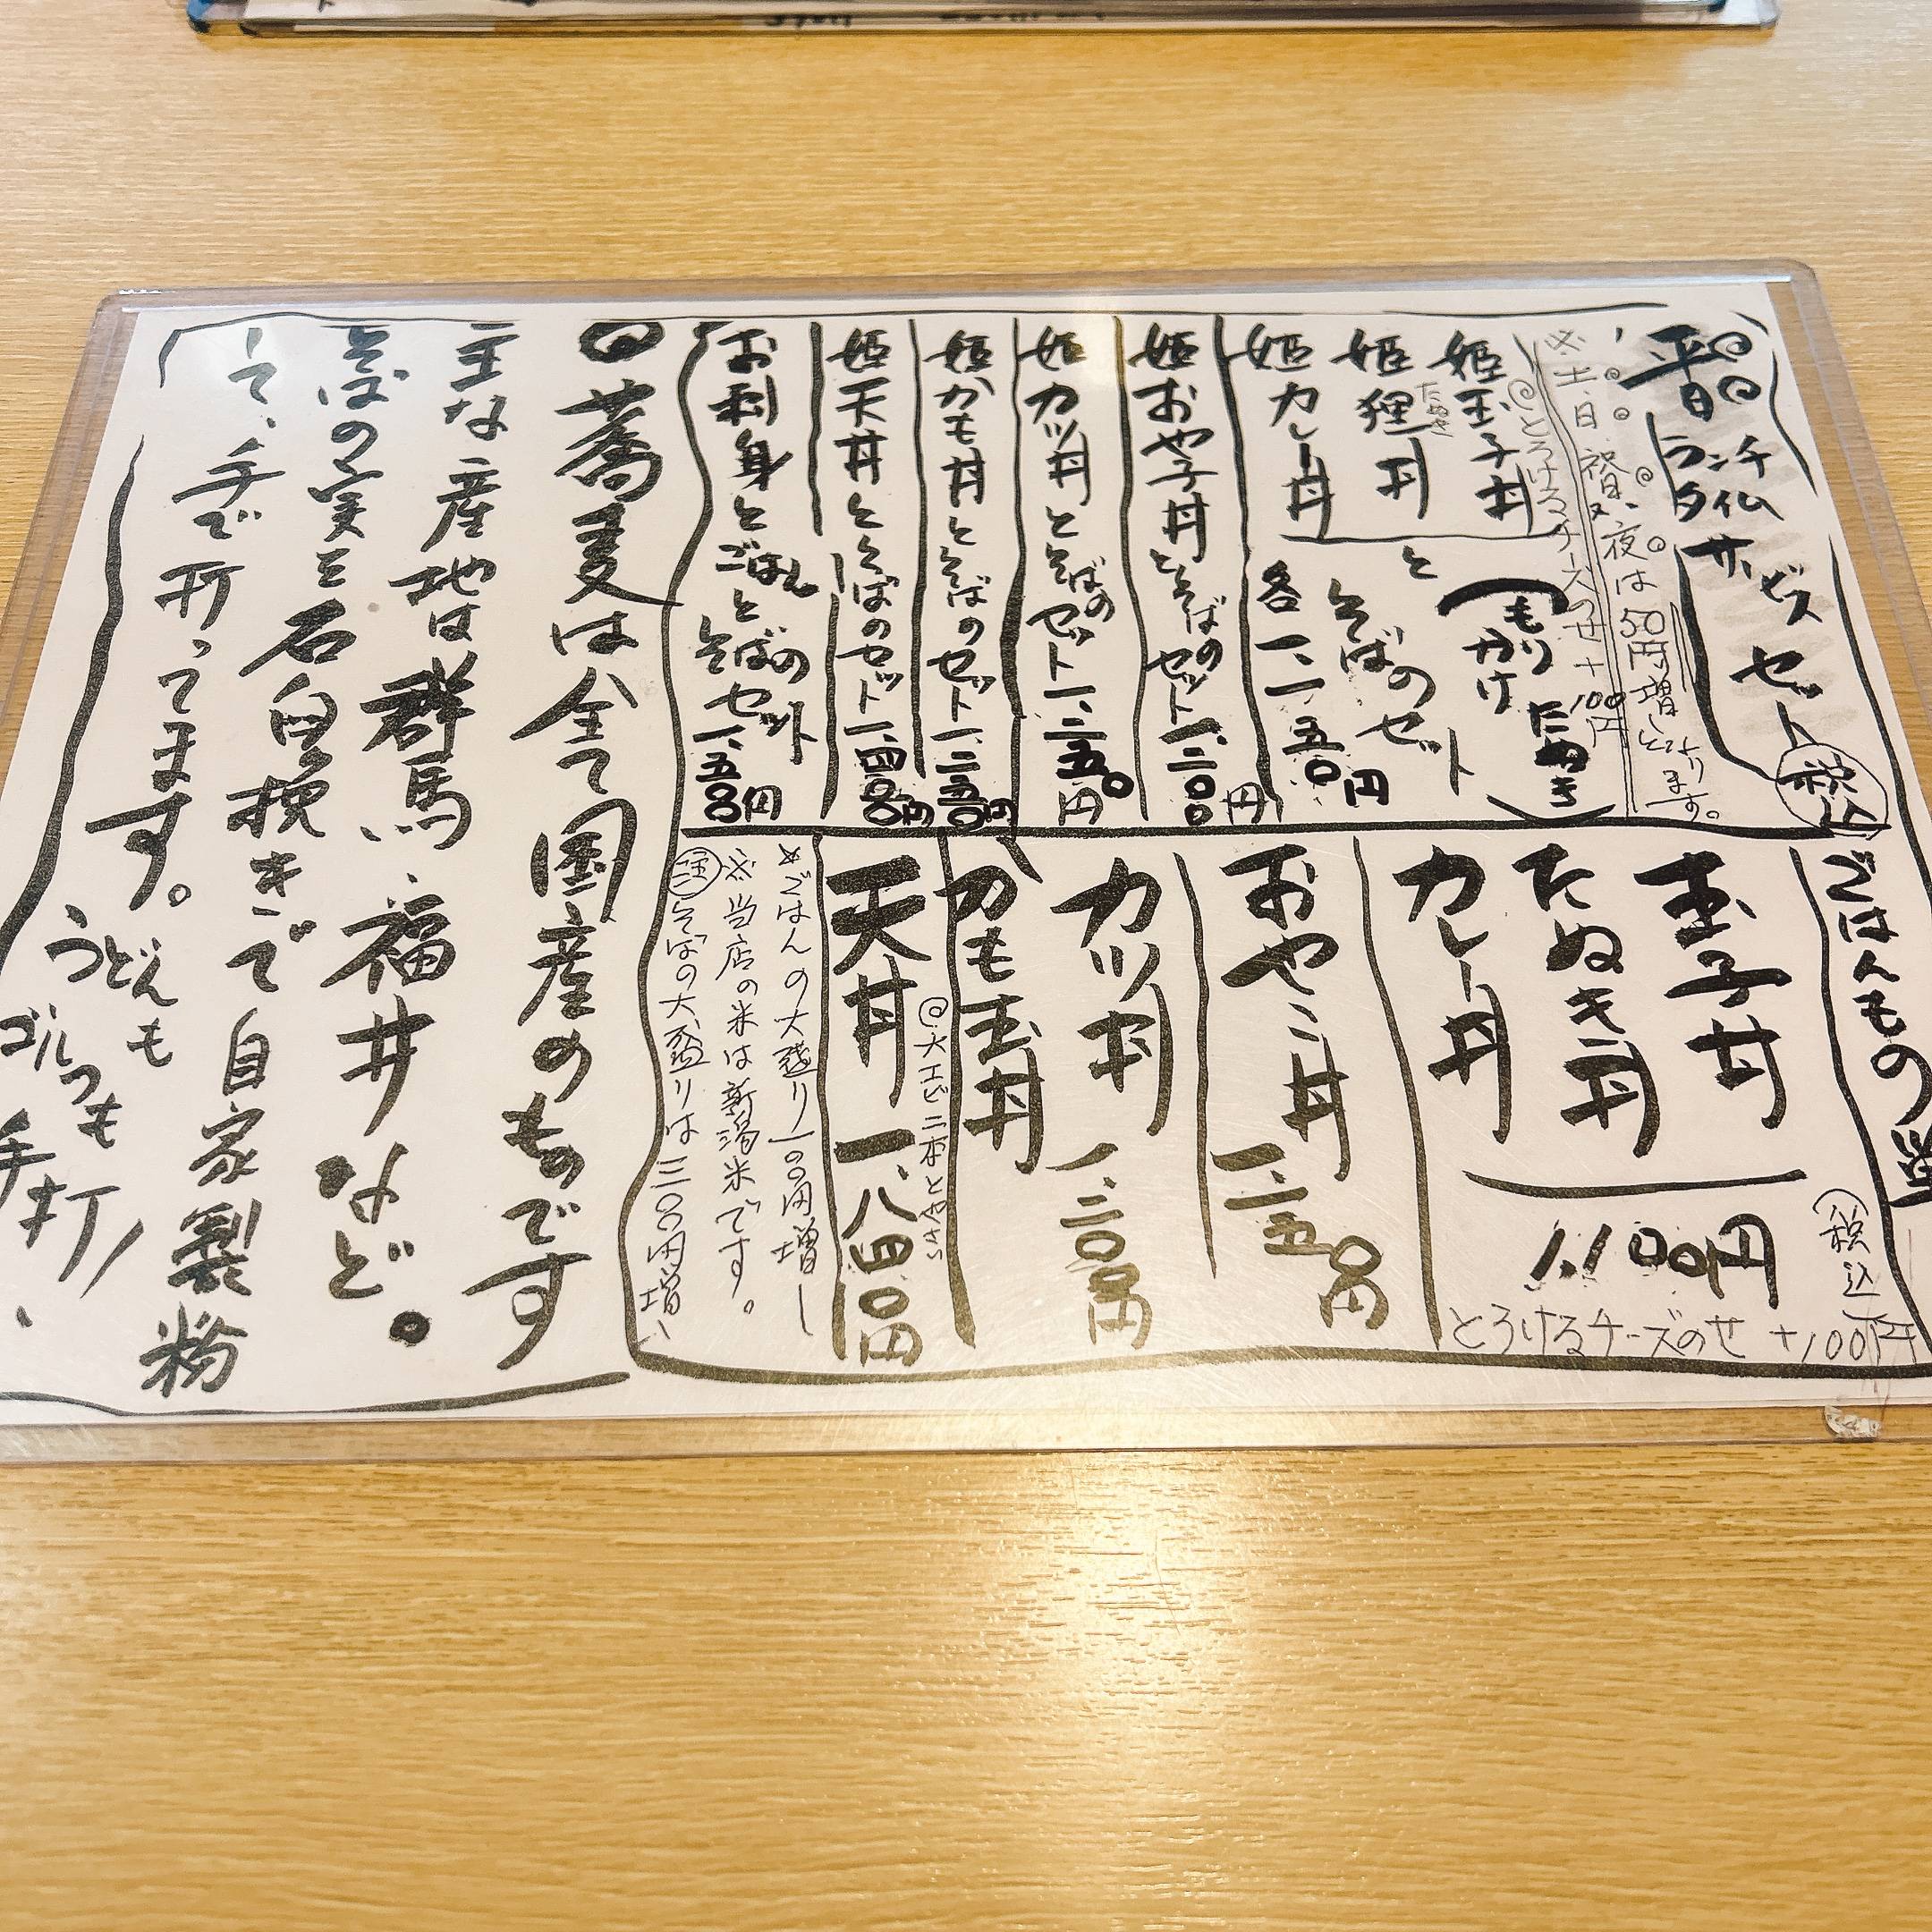 平日
ランチ
タイム
サービスセット
税込
※土、日、祝日、夜は50円増しとなります。
@とろけるチーズのせ+100円
姫玉子丼
姫狸丼
たぬき
姫カレー丼
と
(もり
かけ
たぬき)
そばのセット
各一、一五〇円
姫おや子丼とそばのセット一、二〇〇円
姫カツ丼とそばのセット一、二五〇円
姫かも丼とそばのセット一、三五〇円
姫天丼とそばのセット一、四〇〇円
お刺身とごはんとそばのセット一、五〇〇円
ごはんもの
(税込)
玉子丼
たぬき丼
カレー丼
1,100円
とろけるチーズのせ +100円
おやこ丼 一、一五〇円
カツ丼 一、二〇〇円
かも玉丼
@大エビ二本とやさい
天丼 一、八四〇円
※ごはんの大盛り一〇〇円増し
※当店の米は新潟米です。
注 そばの大盛りは三〇〇円増し
蕎麦は全て国産のものです
主な産地は群馬、福井など。
そばの実を石臼挽きで自家製粉
して、手で打ってます。
うどんも
手打